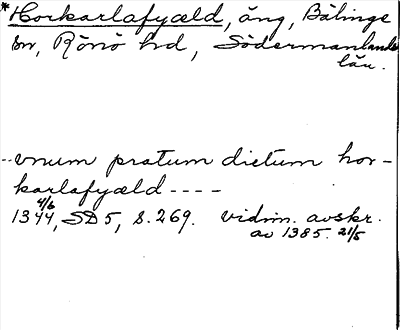 *Horkarlafyæld, äng, Bälinge
sn, Rönö hd, Södermanlands
län.
--vnum pratum dictum hor-
karlafyæld ----
4/6
1344, SD 5, s. 269. vidim. avskr.
av 1385. 21/5